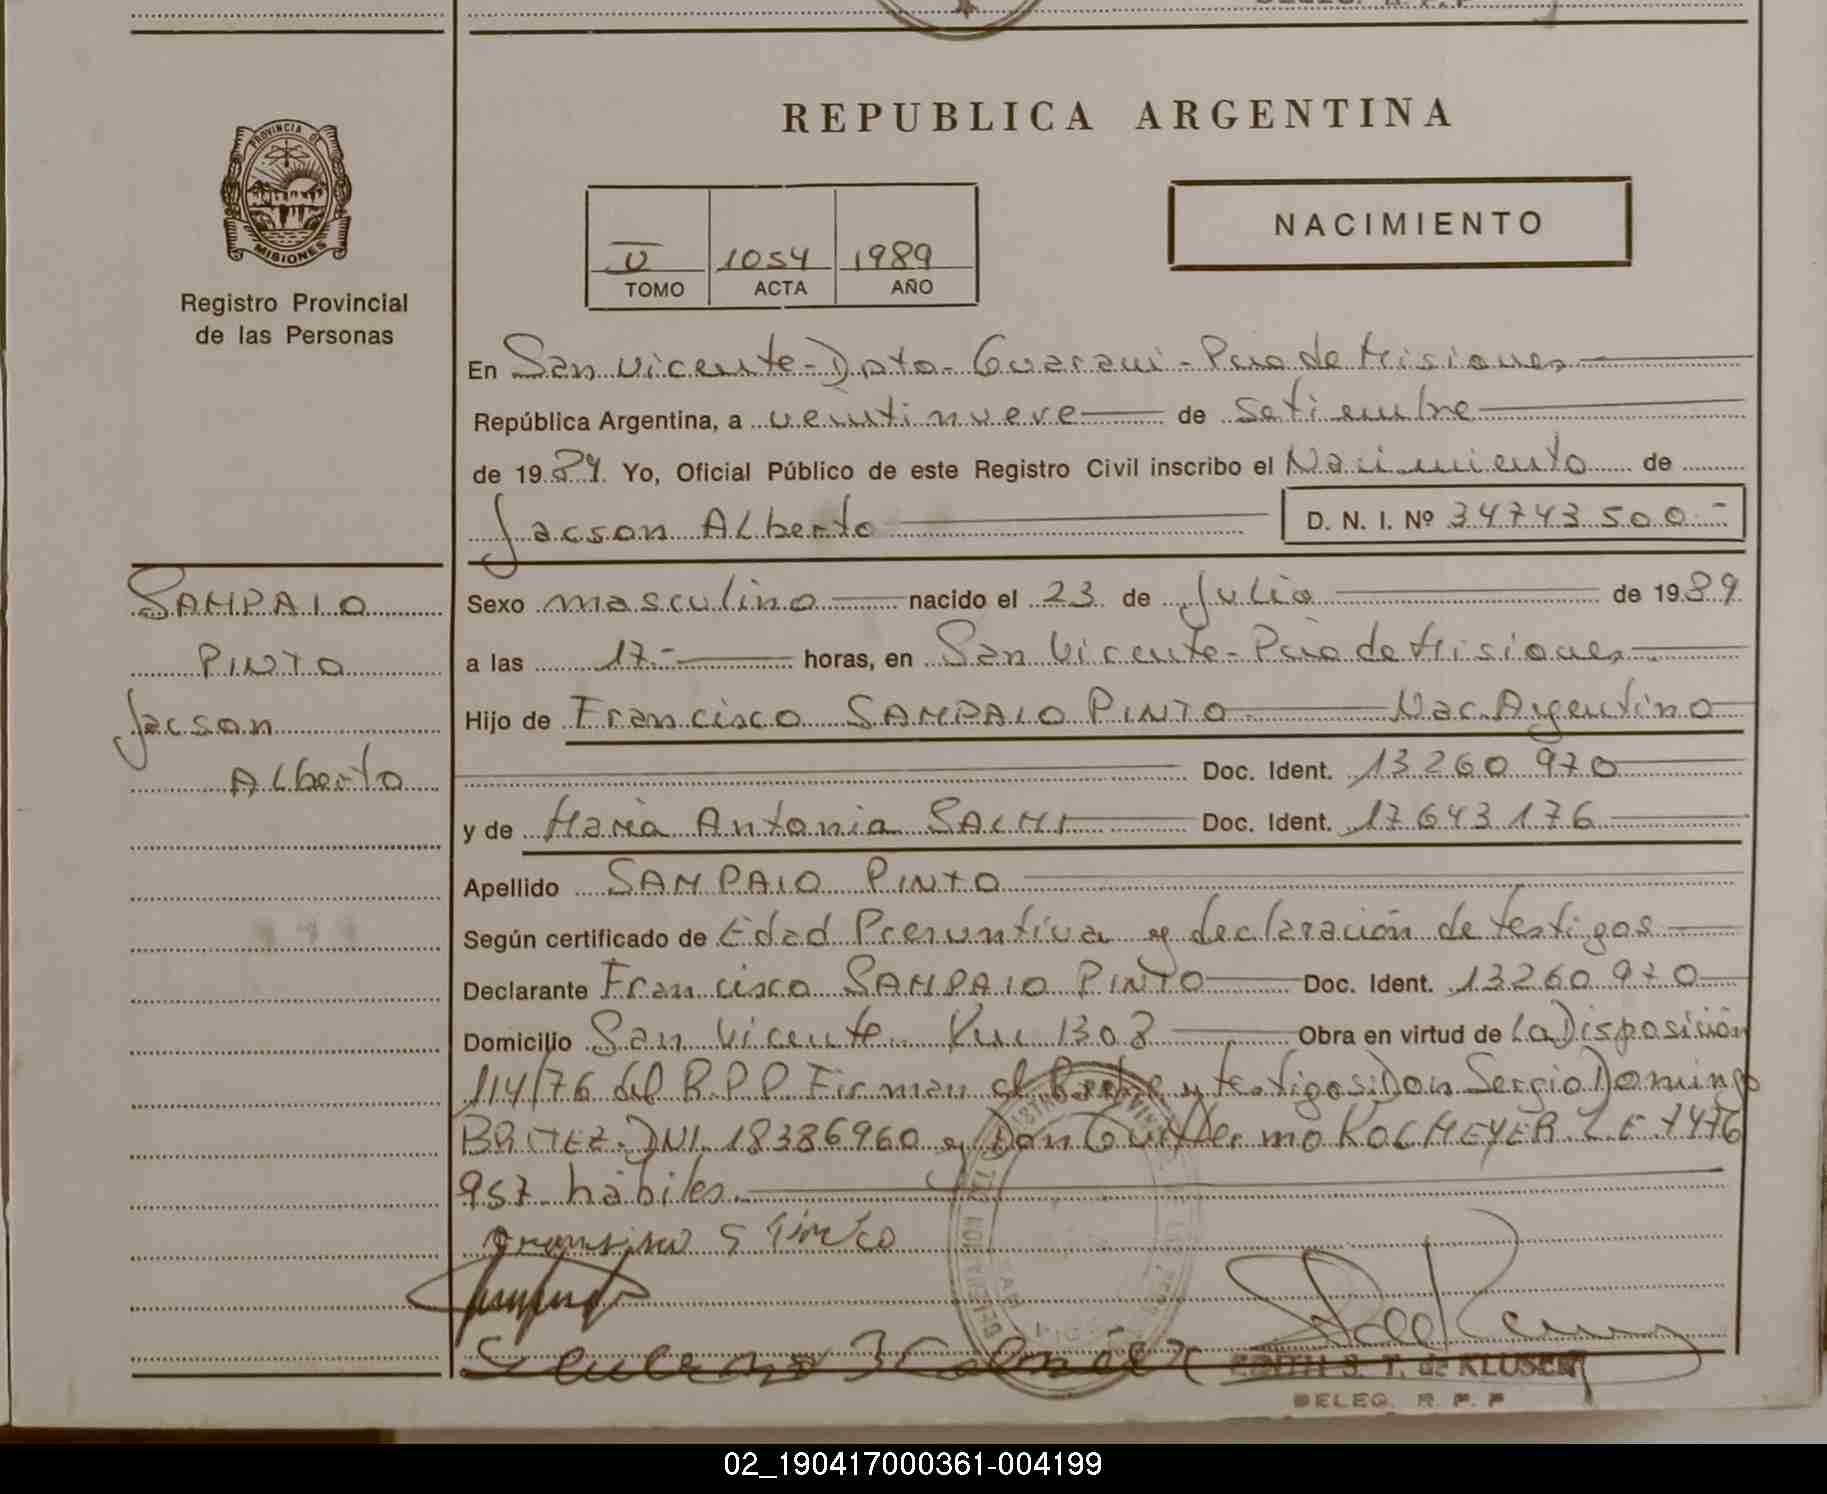 REPUBLICA ARGENTINA
PROVINCIA DE
MISIONES
Registro Provincial
de las Personas
NACIMIENTO
V 1054 1989
TOMO ACTA AÑO
En San Vicente - Dpto - Guarani - Pcia de Misiones
República Argentina, a veintinueve de setiembre
de 1989. Yo, Oficial Público de este Registro Civil inscribo el Nacimiento de
Jacson Alberto D. N. I. Nº 34743500-
SAMPAIO
PINTO
Jacson
Alberto
Sexo masculino nacido el 23 de Julio de 1989
a las 17.- horas, en San Vicente - Pcia de Misiones
Hijo de Francisco SAMPAIO PINTO Nac. Argentino
Doc. Ident. 13260970
y de Maria Antonia SALMI Doc. Ident. 17643176
Apellido SAMPAIO PINTO
Según certificado de Edad Presuntiva y declaración de testigos
Declarante Francisco SAMPAIO PINTO Doc. Ident. 13260970
Domicilio San Vicente Km 1308 Obra en virtud de La Disposición
114/76 del R.P.P. Firman el Padre y testigos: Don Sergio Domingo
BRITEZ - DNI. 18386960 y Don Guillermo KOCHEYER L.E 7476
957 hábiles.
EDITH S. T. de KLUSEN
DELEG. R. P. P
02_190417000361-004199